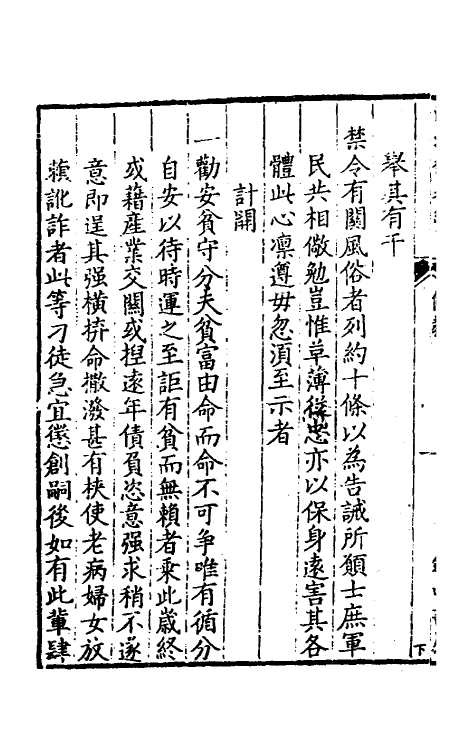 舉其有干
禁令有關風俗者列約十條以為告誡所願士庶軍
民共相儆勉豈惟草薄從忠亦以保身遠害其各
體此心凛遵毋忽須至示者
計開
一勸安貧守分夫貧富由命而命不可争唯有循分
自安以待時運之至詎有貧而無賴者乘此歲終
或藉産業交關或揑遠年債負恣意强求稍不遂
意即逞其强橫拚命撒潑甚有挾使老病婦女放
蘓訛詐者此等刁徒急宜懲創嗣後如有此輩肆
下